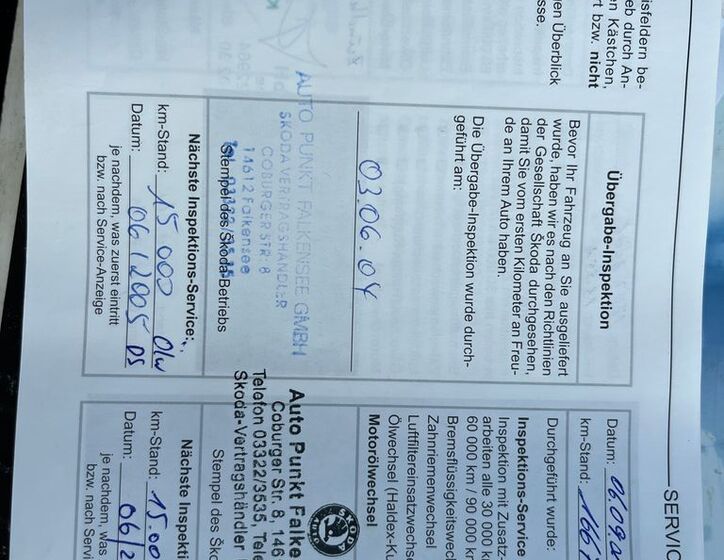 isfeldern be-
eb durch An-
en Kästchen,
rt bzw. nicht
en Überblick
sse.
Übergabe-Inspektion
Bevor Ihr Fahrzeug an Sie ausgeliefert
wurde, haben wir es nach den Richtlinien
der Gesellschaft Škoda durchgesehen,
damit Sie vom ersten Kilometer an Freu-
de an Ihrem Auto haben.
Die Übergabe-Inspektion wurde durch-
geführt am:
03.06.04
AUTO PUNKT FALKENSEE GMBH
SKODAVERTRAGSHÄNDLER
COBURGER STR. 8
14612 Falkensee
Stempel des Škoda-Betriebs
Nächste Inspektions-Service:
km-Stand: 15 000 Ölw
Datum: 06/2005 DS
je nachdem, was zuerst eintritt
bzw. nach Service-Anzeige
SERVIC
Datum: 06.09.
km-Stand: 1667
Durchgeführt wurde:
Inspektions-Service
Inspektion mit Zusatz-
arbeiten alle 30 000 k
60 000 km / 90 000 k
Bremsflüssigkeitswec
Zahnriemenwechsel
Luftfiltereinsatzwechs
Ölwechsel (Haldex-Ku
Motorölwechsel
Auto Punkt Falke
Coburger Str. 8, 146
Telefon 03322/3535, Tele
Skoda-Vertragshändler
SKODA
AUTO
Stempel des Ško
Nächste Inspekti
km-Stand: 15.00
Datum: 06/2
je nachdem, was
bzw. nach Servic